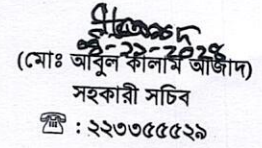 (মোঃ আবুল কালাম আজাদ)
সহকারী সচিব
☎ : ২২৩৩৫৫৫২৯